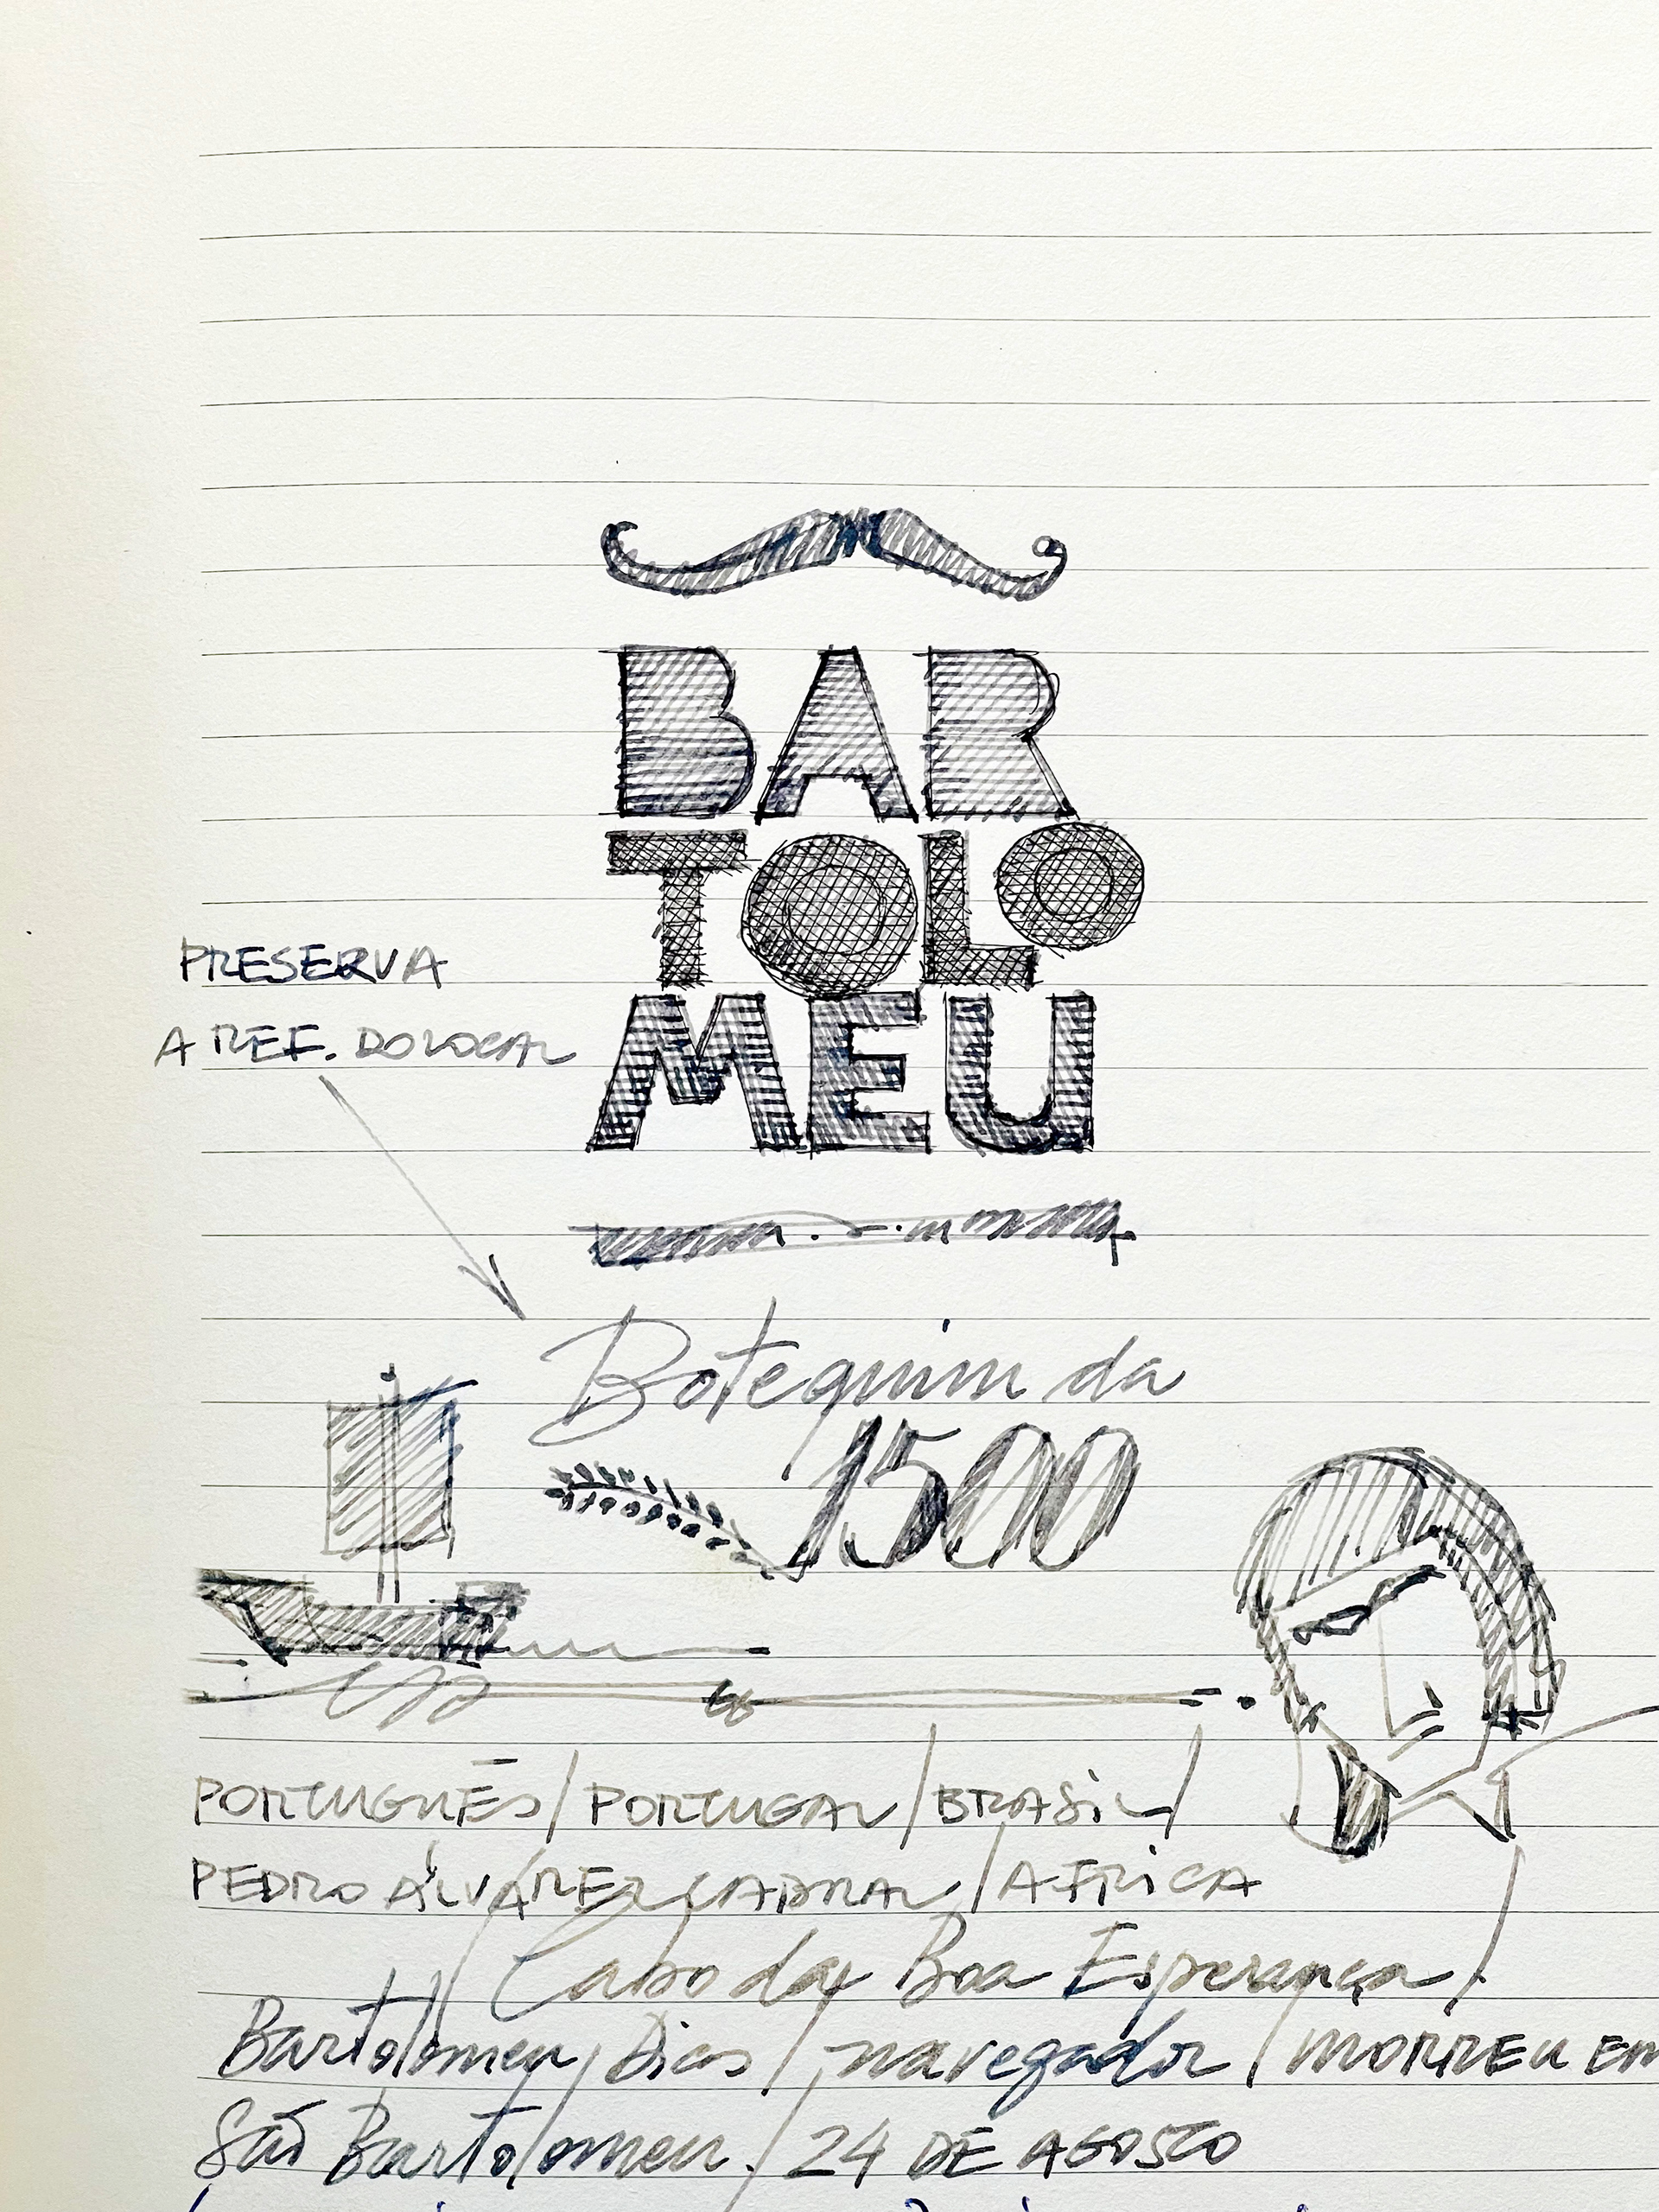 BAR
TOLO
MEU
PRESERVA
A REF. DO LOCAL
Botequim da
1500
PORTUGUÊS / PORTUGAL / BRASIL /
PEDRO ÁLVARES CABRAL / AFRICA
Cabo da Boa Esperança /
Bartolomeu Dias / navegador / MORREU EM
São Bartolomeu. / 24 DE AGOSTO